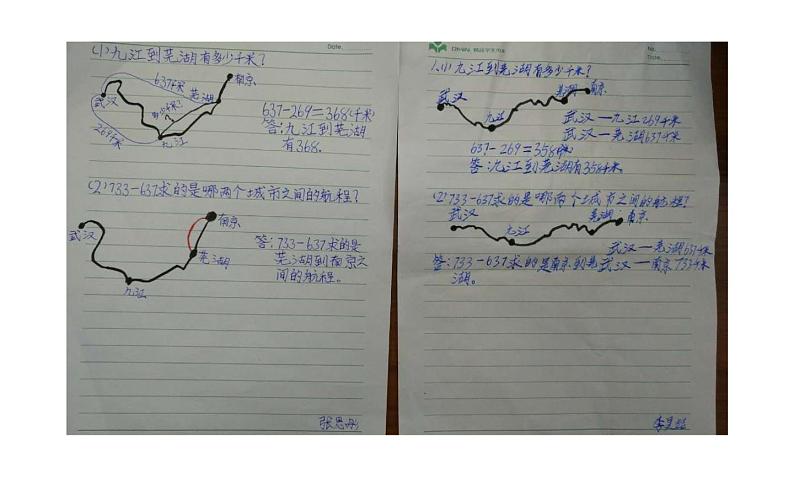 Date.
(1)九江到芜湖有多少千米?
637千米
南京
芜湖
武汉
多少千米?
269千米
九江
637-269=368(千米)
答:九江到芜湖
有368。
(2)733-637求的是哪两个城市之间的航程?
南京
武汉
芜湖
九江
答:733-637求的是
芜湖到南京之
间的航程。
张思彤
No.
Date.
1.(1)九江到芜湖有多少千米?
武汉
芜湖
南京
九江
武汉—九江269千米
武汉—芜湖637千米
637-269=358(千米)
答:九江到芜湖有358千米
(2)733-637求的是哪两个城市之间的航程?
武汉
芜湖
南京
九江
武汉—芜湖637千米
武汉—南京733千米
答:733-637求的是南京到芜
湖。